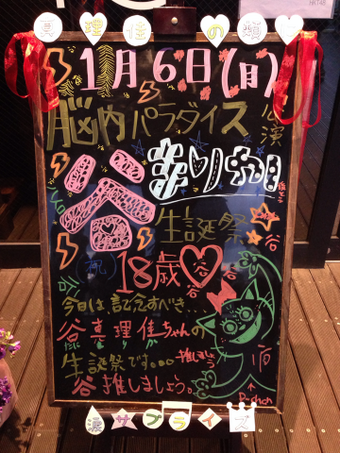 真理佳の類
1月6日(月)
脳内パラダイス公演
谷
生誕祭
谷
18歳
谷
谷
谷
今日は、記念すべき…
谷真理佳ちゃんの
たにまりか
生誕祭です。。。
推しましょう
谷推しましょう。
P-chan
涙サプライズ